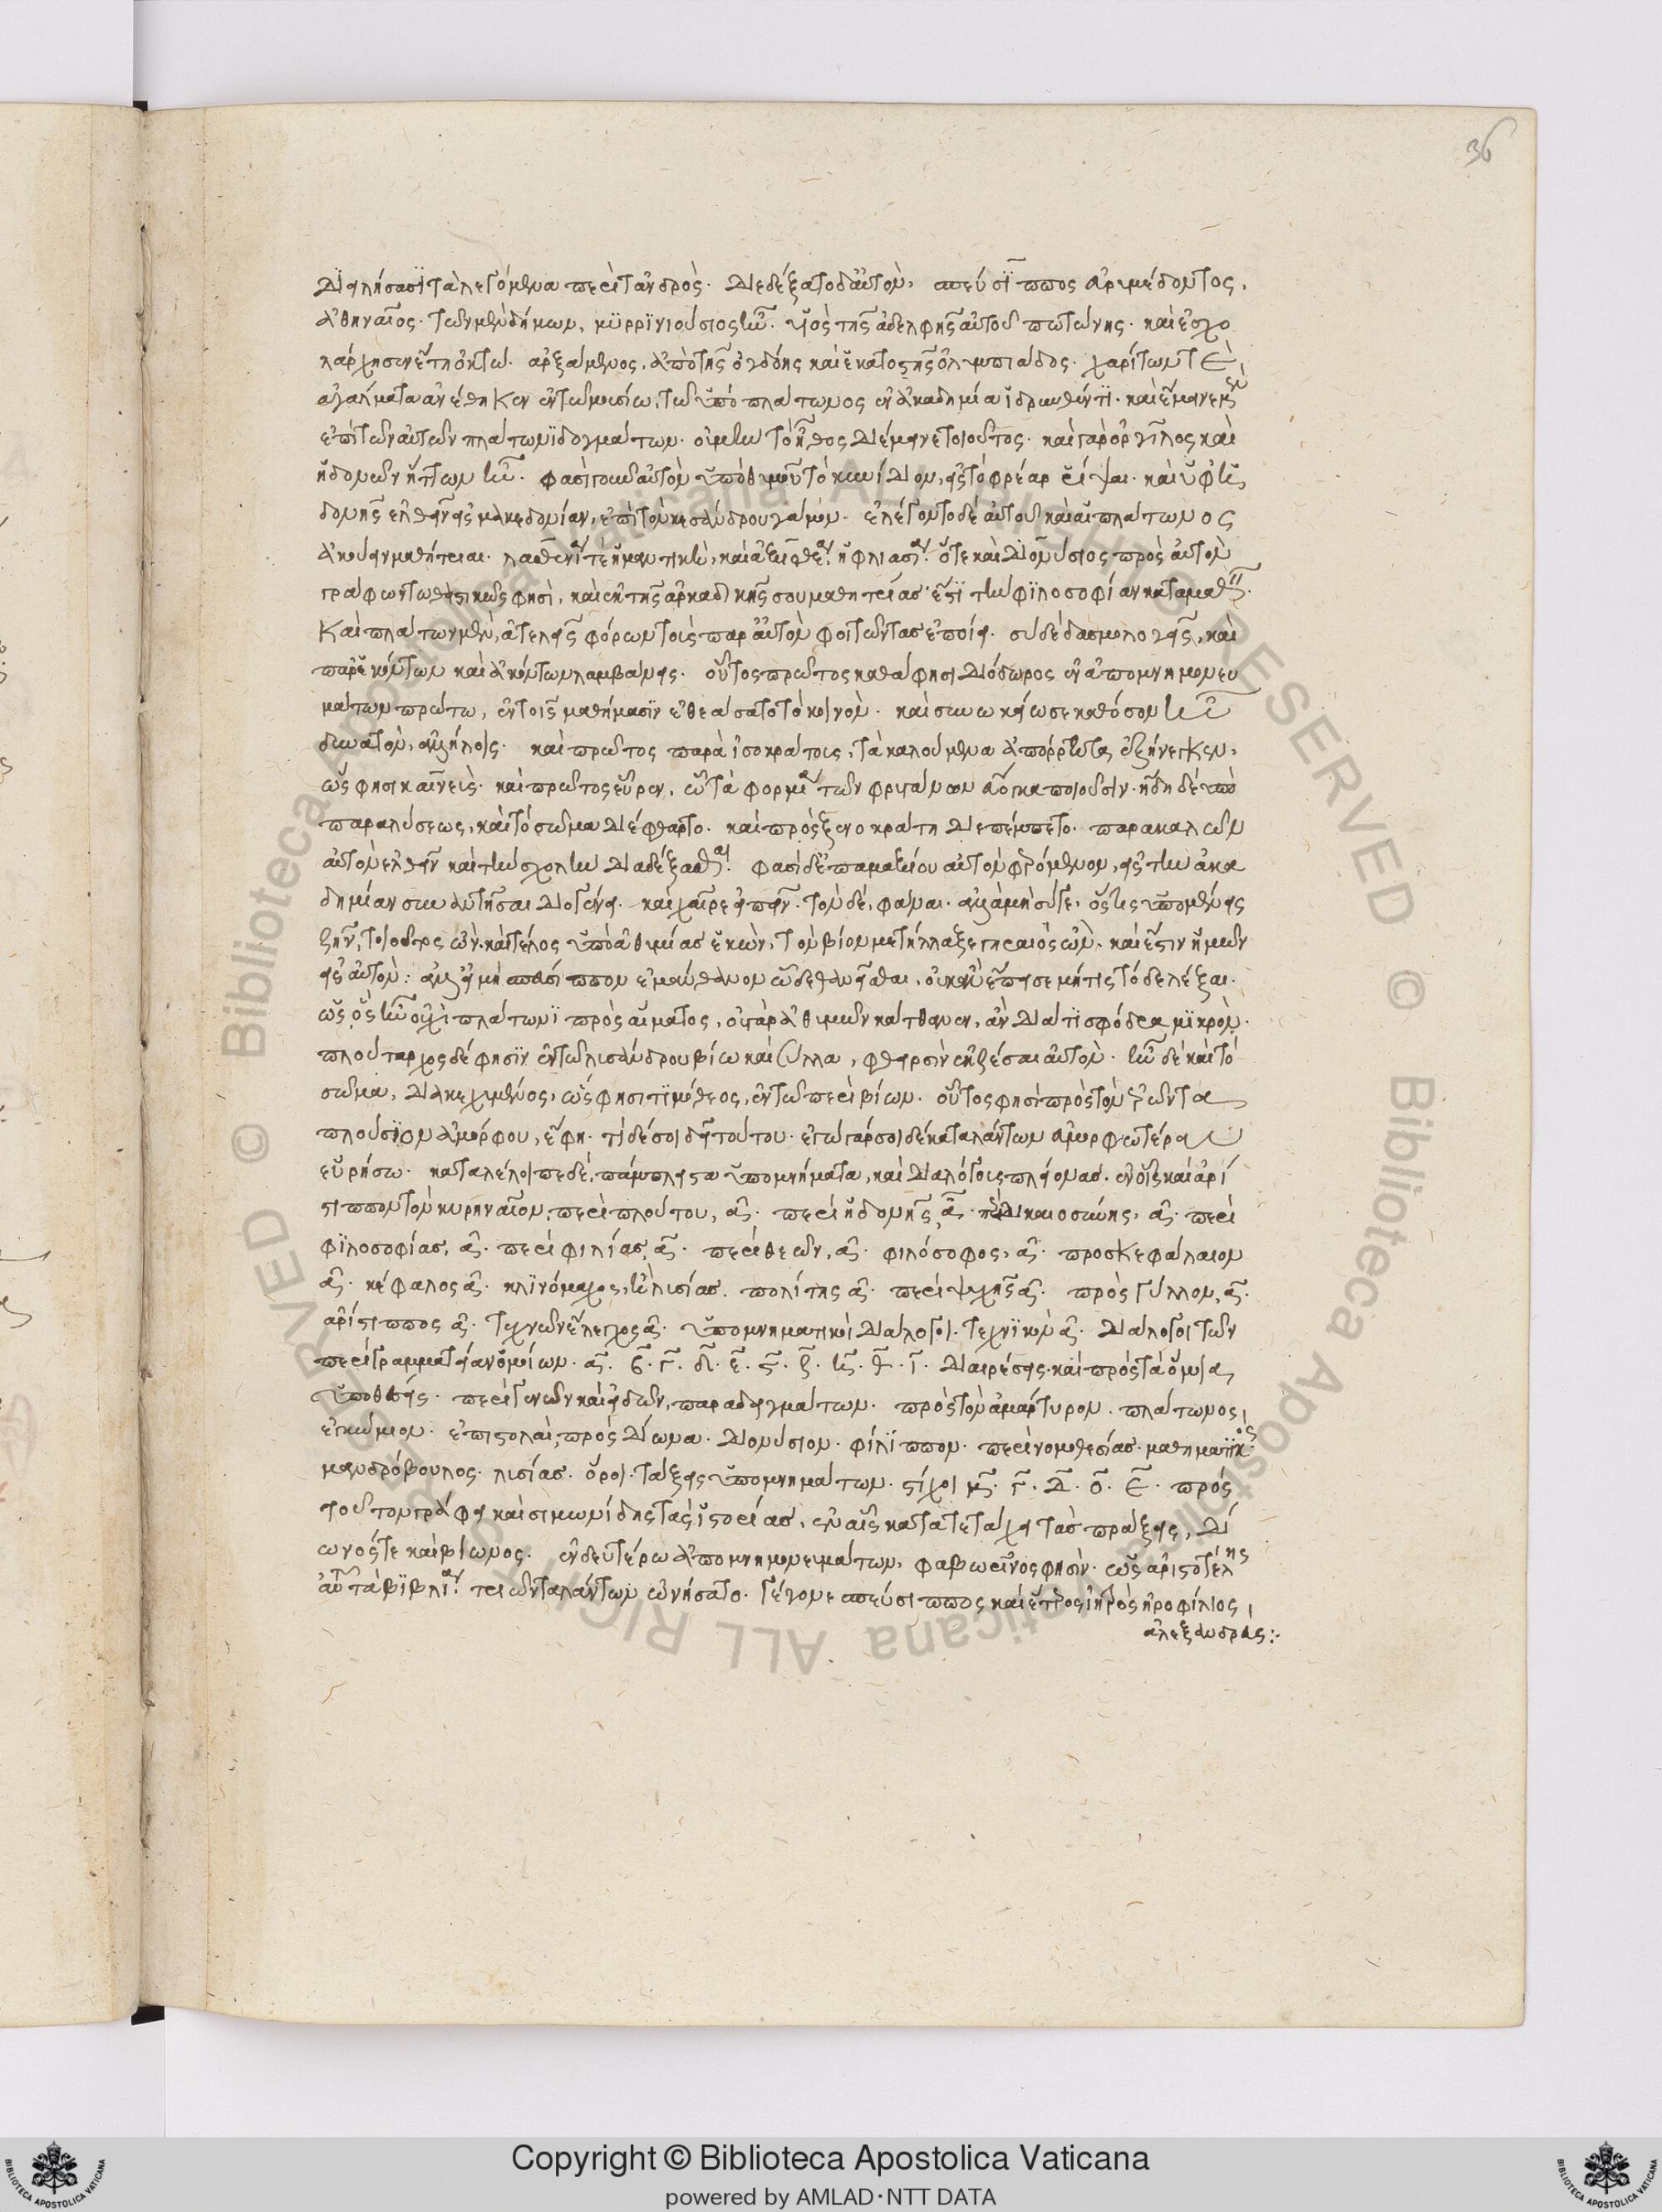 36
διηγήσασϊ τὰ λεγόμενα περὶ τἀνδρός. διεδέξατο δ' αὐτὸν, σπεύσϊππος εὐριμέδοντος,
ἀθηναῖος. τῶν μὲν δήμων, μϋρρϊνιούσιος ἦν. υἱὸς τῆς ἀδελφῆς αὐτοῦ πωτώνης. καὶ ἐσχο
λάρχησεν ἔτη ὀκτώ. ἀρξάμενος, ἀπὸ τῆς ὀγδόης καὶ ἑκατοστῆς ὀλυμπιάδος. χαρίτων τὲ
ἀγάλματα ἀνέθηκεν ἐν τῶ μουσείω, τῶ ὑπὸ πλάτωνος ἐν ἀκαδημία ἱδρυνθέντϊ. καὶ ἔμεινε μὲν
ἐπὶ τῶν αὐτῶν πλάτωνϊ δογμάτων. οὐ μὴν τὸ ἦθος διέμεινε τοιοῦτος. καὶ γὰρ ὀργίλος καὶ
ἡδονῶν ἥττων ἦν. φασὶ γοῦν αὐτὸν ὑπὸ θυμοῦ τὸ κυνίδιον, εἰς τὸ φρέαρ ῥίψαι. καὶ ὑφ' ἡ
δονῆς ἐλθεῖν εἰς μακεδονίαν, ἐπὶ τὸν κασάνδρου γάμον. ἐλέγοντο δὲ αὐτοῦ καὶ αἱ πλάτωνος
ἀκούειν μαθήτριαι. λασθένεια τὲ ἡ μαντινικὴ, καὶ ἀξιοθέα ἡ φλιασία. ὅτε καὶ διονύσιος πρὸς αὐτὸν
γράφων τωθαστικῶς φησὶ, καὶ ἐκ τῆς ἀρκαδικῆς σου μαθητρίας ἔστϊ τὴν φϊλοσοφίαν καταμαθεῖν.
καὶ πλάτων μὲν, ἀτελεῖς φόρων τοὺς παρ' αὐτὸν φοιτῶντας ἐποίει. σὺ δὲ δασμολογεῖς, καὶ
παρ' ἑκόντων καὶ ἀκόντων λαμβάνεις. οὗτος πρῶτος καθά φησι διόδωρος ἐν ἀπομνημονευ
μάτων πρώτω, ἐν τοῖς μαθήμασϊν ἐθεάσατο τὸ κοινὸν. καὶ συνωκείωσε καθόσον ἦν
δυνατὸν, ἀλλήλοις. καὶ πρῶτος παρὰ ἰσοκράτους, τὰ καλούμενα ἀπόρρητα ἐξήνεγκεν,
ὥς φησι καινεὺς. καὶ πρῶτος εὗρεν, ὧ τὰ φορμία τῶν φρυγάνων εὔογκα ποιοῦσϊν. ἤδη δὲ ὑπὸ
παραλύσεως, καὶ τὸ σῶμα διέφθαρτο. καὶ πρὸς ξενοκράτη διεπέμπετο. παρακαλῶν
αὐτὸν ἐλθεῖν καὶ τὴν σχολὴν διαδέξασθαι. φασὶ δὲ ἐπ' ἀμαξίου αὐτὸν φερόμενον, εἰς τὴν ἀκα
δημίαν συναντῆσαι διογένει. καὶ χαῖρε εἰπεῖν. τὸν δὲ, φάναι. ἀλλὰ μὴ σύγε. ὅστις ὑπομένεις
ζῆν, τοιοῦτος ὤν. καὶ τέλος ὑπὸ ἀθυμίας ἑκὼν, τὸν βίον μετήλλαξε γηραιὸς ὢν. καὶ ἔστϊν ἡμῶν
εἰς αὐτὸν: ἀλλ' εἰ μὴ σπεύσϊππον ἐμάνθανον ὧδε θανεῖσθαι, οὐκ ἂν ἔπεισέ μή τις τόδε λέξαι.
ὡς, ὃς ἦν οὐχὶ πλάτωνϊ πρὸς αἵματος, οὐ γὰρ ἀθυμῶν κάτθανεν, ἂν διά τϊ σφόδρα μϊκρὸν.
πλούταρχος δέ φησϊν ἐν τῶ λυσάνδρου βίω καὶ σύλλα, φθειρσὶν ἐκζέσαι αὐτὸν. ἦν δὲ καὶ τὸ
σῶμα, διακεχυμένος, ὥς φησι τϊμόθεος, ἐν τῶ περὶ βίων. οὗτος φησὶ πρὸς τὸν ἐρῶντα
πλούσϊον ἀμόρφου, ἔφη. τί δέ σοι δεῖ τούτου. ἐγὼ γάρ σοι δέκα ταλάντων εὐμορφωτέραν
εὑρήσω. καταλέλοιπε δὲ, πάμπλειστα ὑπομνήματα, καὶ διαλόγους πλείονας. ἐν οἷς καὶ ἀρί
στιππον τὸν κυρηναῖον. περὶ πλούτου, α. περὶ ἡδονῆς α. περὶ δικαιοσύνης, α. περὶ
φϊλοσοφίας, α. περὶ φιλίας, α. περὶ θεῶν, α. φιλόσοφος, α. πρὸς κεφάλαιον
α. κέφαλος α. κλϊνόμαχος, ἢ λυσίας. πολίτης α. περὶ ψυχῆς α. πρὸς γύλλον, α.
ἀρίστιππος α. τεχνῶν ἔλεγχος α. ὑπομνηματικοὶ διάλογοι. τεχνϊκὸν α. διάλογοι τῶν
περὶ γραμματείαν ὁμοίων. α. β. γ. δ. ε. ς. ζ. η. θ. ι. διαιρέσεις καὶ πρὸς τὰ ὅμοια
ὑποθέσεις. περὶ γενῶν καὶ εἰδῶν, παραδειγμάτων. πρὸς τὸν ἀμάρτυρον. πλάτωνος
ἐγκώμιον. ἐπιστολαὶ, πρὸς δίωνα. διονύσιον. φίλϊππον. περὶ νομοθεσίας. μαθηματϊκός
μανδρόβουλος. λυσίας. ὅροι. τάξεις ὑπομνημάτων. στίχοι μ. γ. δ. ο. ε. πρὸς
τοῦτον γράφει καὶ σιμωνίδης τὰς ἱστορίας, ἐν αἷς κατατετάχει τὰς πράξεις, δί
ωνός τε καὶ βίωνος. ἐν δευτέρω ἀπομνημονευμάτων, φαβωρῖνος φησὶν. ὡς ἀριστοτέλης
αὐτοῦ τὰ βϊβλία τριῶν ταλάντων ὠνήσατο. γέγονε σπεύσιππος καὶ ἕτερος ἰατρὸς ἡροφίλιος
ἀλεξανδρεύς: